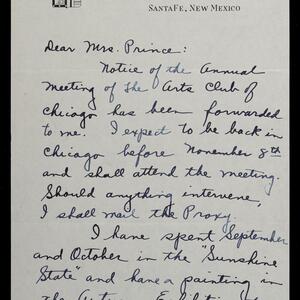 SANTA FE, NEW MEXICO
Dear Mrs. Prince:
Notice of the Annual
Meeting of the Arts Club of
Chicago has been forwarded
to me. I expect to be back in
Chicago before November 8th
and shall attend the meeting.
Should anything intervene,
I shall mail the Proxy.
I have spent September
and October in the "Sunshine
State" and have a painting in